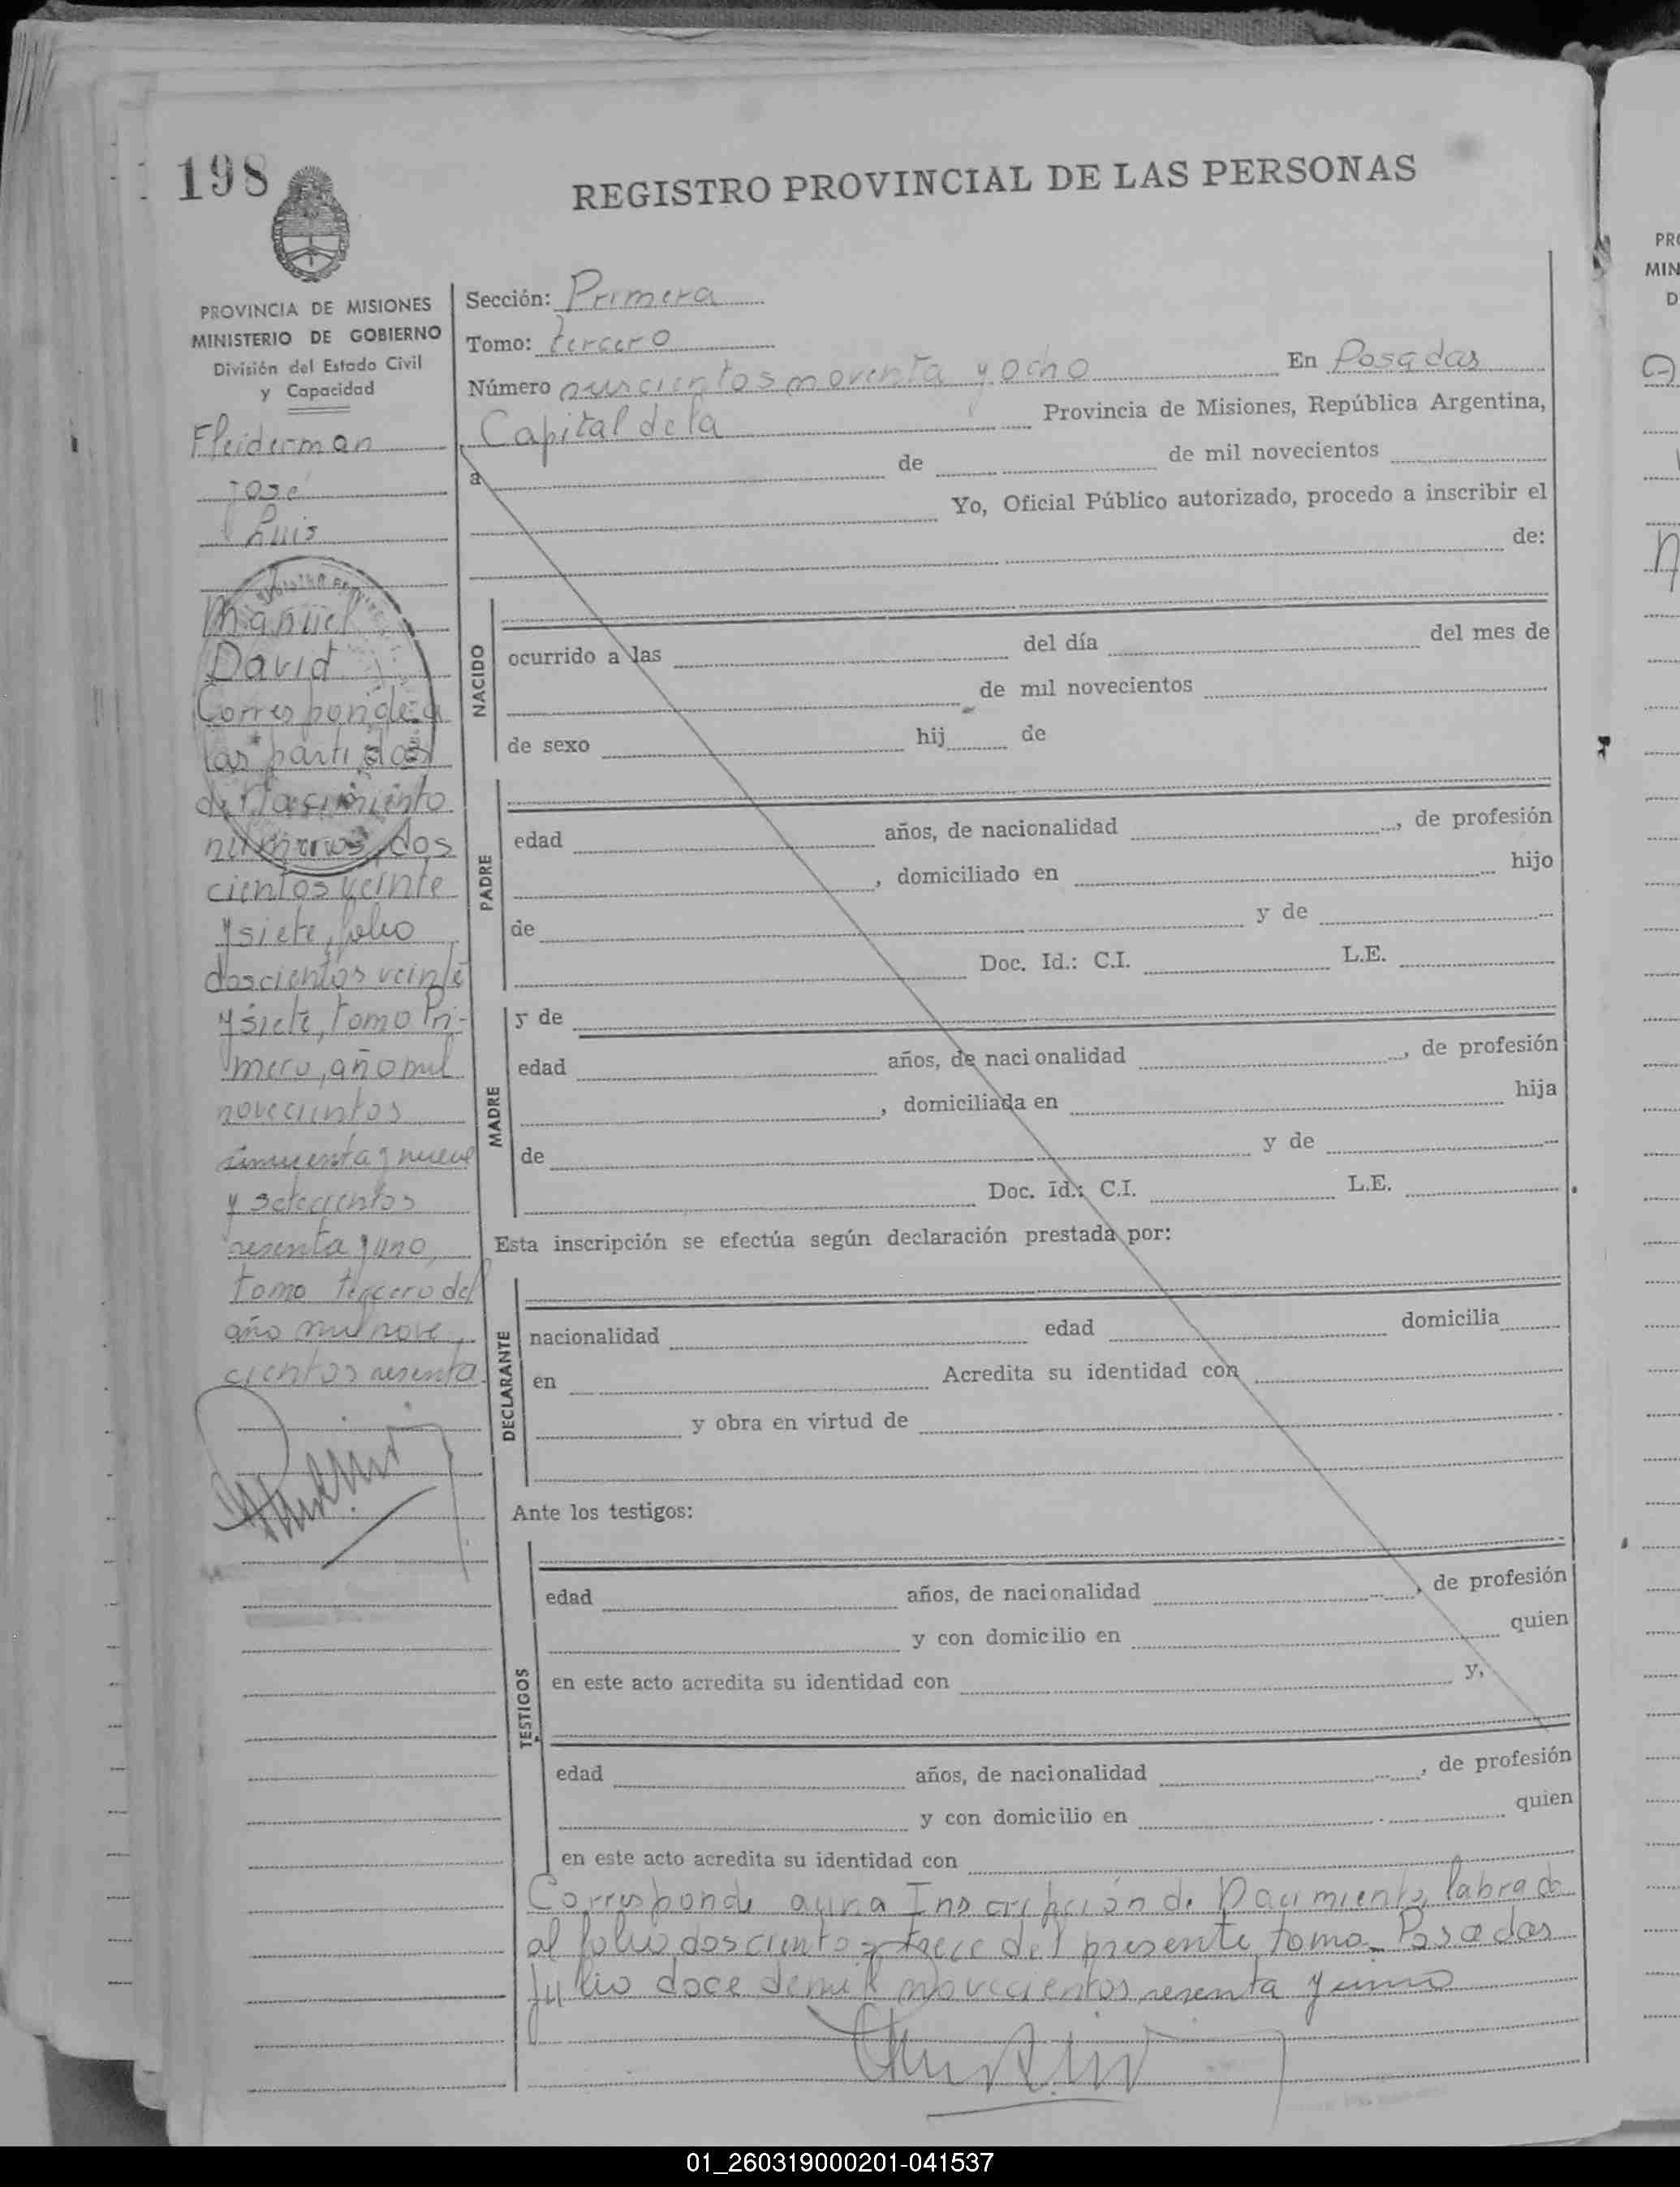 198
REGISTRO PROVINCIAL DE LAS PERSONAS
PROVINCIA DE MISIONES
MINISTERIO DE GOBIERNO
División del Estado Civil
y Capacidad
Fleiderman
José
Luis
Manuel
David
Corresponde a
las partidas
de Nacimiento
numeros, dos
cientos veinte
y siete, folio
doscientos veinte
y siete, tomo Pri-
mero, año mil
novecientos
cincuenta y nueve
y setecientos
sesenta y uno,
tomo tercero del
año mil nove
cientos sesenta
Sección: Primera
Tomo: tercero
Número novecientos noventa y ocho En Posadas
Capital de la Provincia de Misiones, República Argentina,
a de de mil novecientos
Yo, Oficial Público autorizado, procedo a inscribir el
de:
NACIDO
ocurrido a las del día del mes de
de mil novecientos
de sexo hij de
PADRE
edad años, de nacionalidad , de profesión
, domiciliado en hijo
de y de
Doc. Id.: C.I. L.E.
MADRE
y de
edad años, de nacionalidad , de profesión
, domiciliada en hija
de y de
Doc. Id.: C.I. L.E.
Esta inscripción se efectúa según declaración prestada por:
DECLARANTE
nacionalidad edad domicilia
en Acredita su identidad con
y obra en virtud de
Ante los testigos:
TESTIGOS
edad años, de nacionalidad , de profesión
y con domicilio en quien
en este acto acredita su identidad con y,
edad años, de nacionalidad , de profesión
y con domicilio en quien
en este acto acredita su identidad con
Corresponde a una Inscripción de Nacimiento labrada
al folio doscientos trece del presente tomo. Posadas
Julio doce de mil novecientos sesenta y uno
PR
MIN
D
01_260319000201-041537